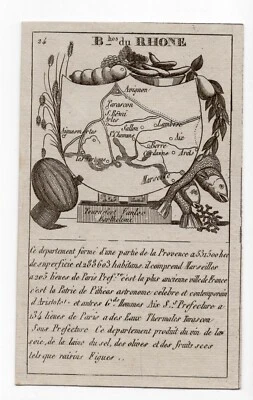 24
B.hes du RHONE
Avignon
Tarascon
S. Remi
Arles
Salon
Lambesc
S. Chamas
Aix
Berre
Marseille
Tournefort Vanloo
Barthelemi
Ce departement formé d'une partie de la Provence a 531500 hec
de superficie et 288603 habitans. il comprend Marseilles
a 205 lieues de Paris Pref.re c'est la plus ancienne ville de France
c'est la Patrie de Pitheas astronome celebre et contemporain
d'Aristote! et autres G.ds Hommes Aix S.s Prefecture a
134 lieues de Paris a des Eaux Thermales Tarascon
Sous Prefecture Ce departement produit du vin de la
soie, de la laine du sel, des olives et des fruits secs
tels que raisins Figues ..